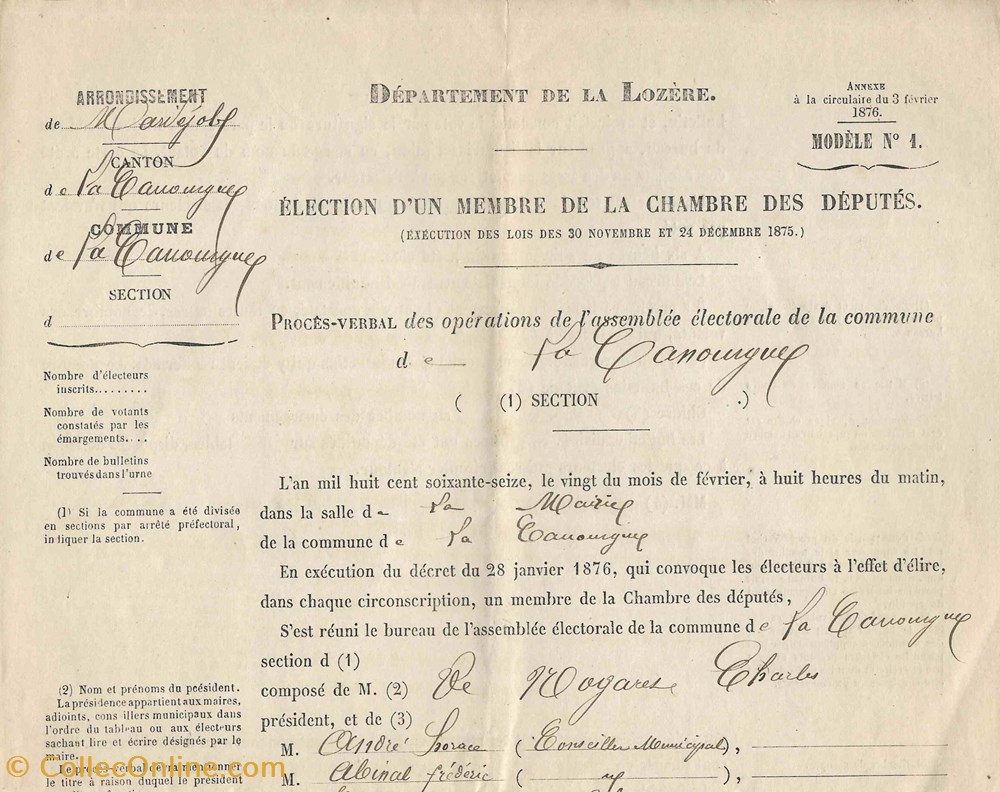 ARRONDISSEMENT
de Marvéjols
CANTON
de La Canourgue
COMMUNE
de La Canourgue
SECTION
d
Nombre d'électeurs
inscrits.........
Nombre de votants
constatés par les
émargements....
Nombre de bulletins
trouvés dans l'urne
(1) Si la commune a été divisée
en sections par arrêté préfectoral,
indiquer la section.
(2) Nom et prénoms du pcésident.
La présidence appartient aux maires,
adjoints, conseillers municipaux dans
l'ordre du tableau ou aux électeurs
sachant lire et écrire désignés par le
maire.
Le procès-verbal devra mentionner
le titre à raison duquel le président
DÉPARTEMENT DE LA LOZÈRE.
ANNEXE
à la circulaire du 3 février
1876.
MODÈLE N° 1.
ÉLECTION D'UN MEMBRE DE LA CHAMBRE DES DÉPUTÉS.
(EXÉCUTION DES LOIS DES 30 NOVEMBRE ET 24 DÉCEMBRE 1875.)
PROCÈS-VERBAL des opérations de l'assemblée électorale de la commune
de La Canourgue
( (1) SECTION .)
L'an mil huit cent soixante-seize, le vingt du mois de février, à huit heures du matin,
dans la salle de la Mairie
de la commune de La Canourgue
En exécution du décret du 28 janvier 1876, qui convoque les électeurs à l'effet d'élire,
dans chaque circonscription, un membre de la Chambre des députés,
S'est réuni le bureau de l'assemblée électorale de la commune de La Canourgue
section d (1)
composé de M. (2) De Nogaret Charles
président, et de (3)
M. André Horace (Conseiller Municipal),
M. Abinal frédéric ( ),
© CollecOnline.com